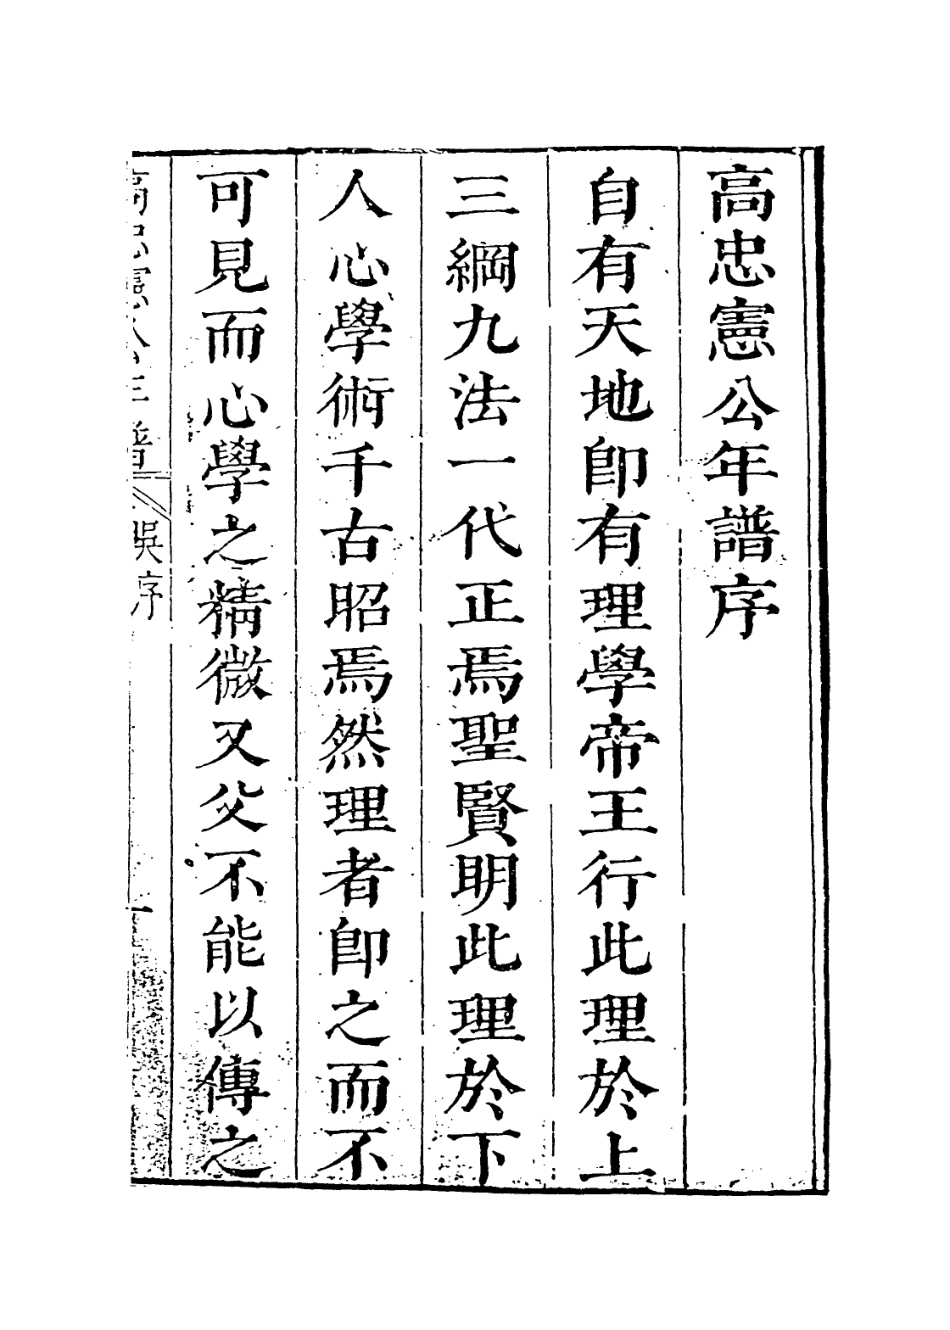 高忠憲公年譜序
自有天地卽有理學帝王行此理於上
三綱九法一代正焉聖賢明此理於下
人心學術千古昭焉然理者卽之而不
可見而心學之精微又父不能以傳之
高忠憲公年譜 吳序 一